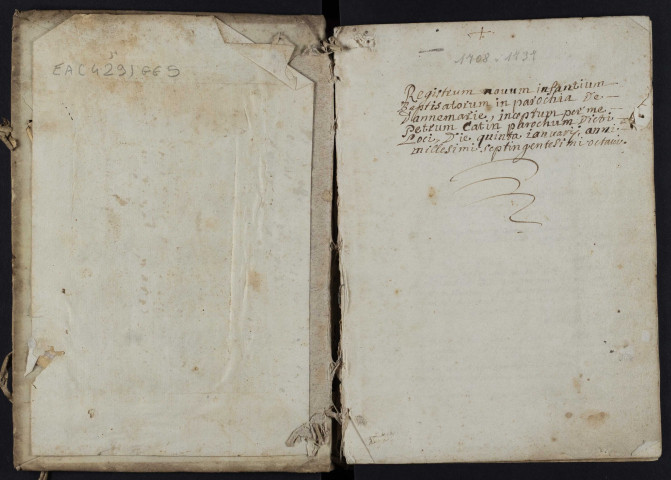 EAC429)GG5
+
1708 - 1737
Registrum novum infantium
Baptisatorum in parochia De
Dannemarie, inceptum per me
Petrum Catin parochum Dicti
Loci, Die quinta ianuarii, anni
millesimi septingentesimi octavi.